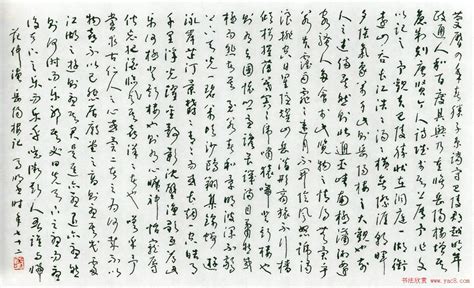 慶曆四年春滕子京謫守巴陵郡越明年
政通人和百廢具興乃重修岳陽樓增其
舊制刻唐賢今人詩賦于其上屬予作文
以記之予觀夫巴陵勝狀在洞庭一湖銜
遠山吞長江浩浩湯湯橫無際涯朝暉
夕陰氣象萬千此則岳陽樓之大觀也前
人之述備矣然則北通巫峽南極瀟湘遷
客騷人多會于此覽物之情得無異乎
若夫霪雨霏霏連月不開陰風怒號濁
浪排空日星隱曜山岳潛形商旅不行檣
傾楫摧薄暮冥冥虎嘯猿啼登斯樓
也則有去國懷鄉憂讒畏譏滿目蕭然感
極而悲者矣至若春和景明波瀾不驚上
下天光一碧萬頃沙鷗翔集錦鱗游
泳岸芷汀蘭郁郁青青而或長煙一空皓月
千里浮光躍金靜影沉璧漁歌互答此
樂何極登斯樓也則有心曠神怡寵辱
偕忘把酒臨風其喜洋洋者矣嗟夫予
嘗求古仁人之心或異二者之為何哉不以
物喜不以己悲居廟堂之高則憂其民處
江湖之遠則憂其君是進亦憂退亦憂
然則何時而樂耶其必曰先天下之憂而憂
後天下之樂而樂乎噫微斯人吾誰與歸
范仲淹岳陽樓記 時年七十二
书法欣赏 www.yac8.com